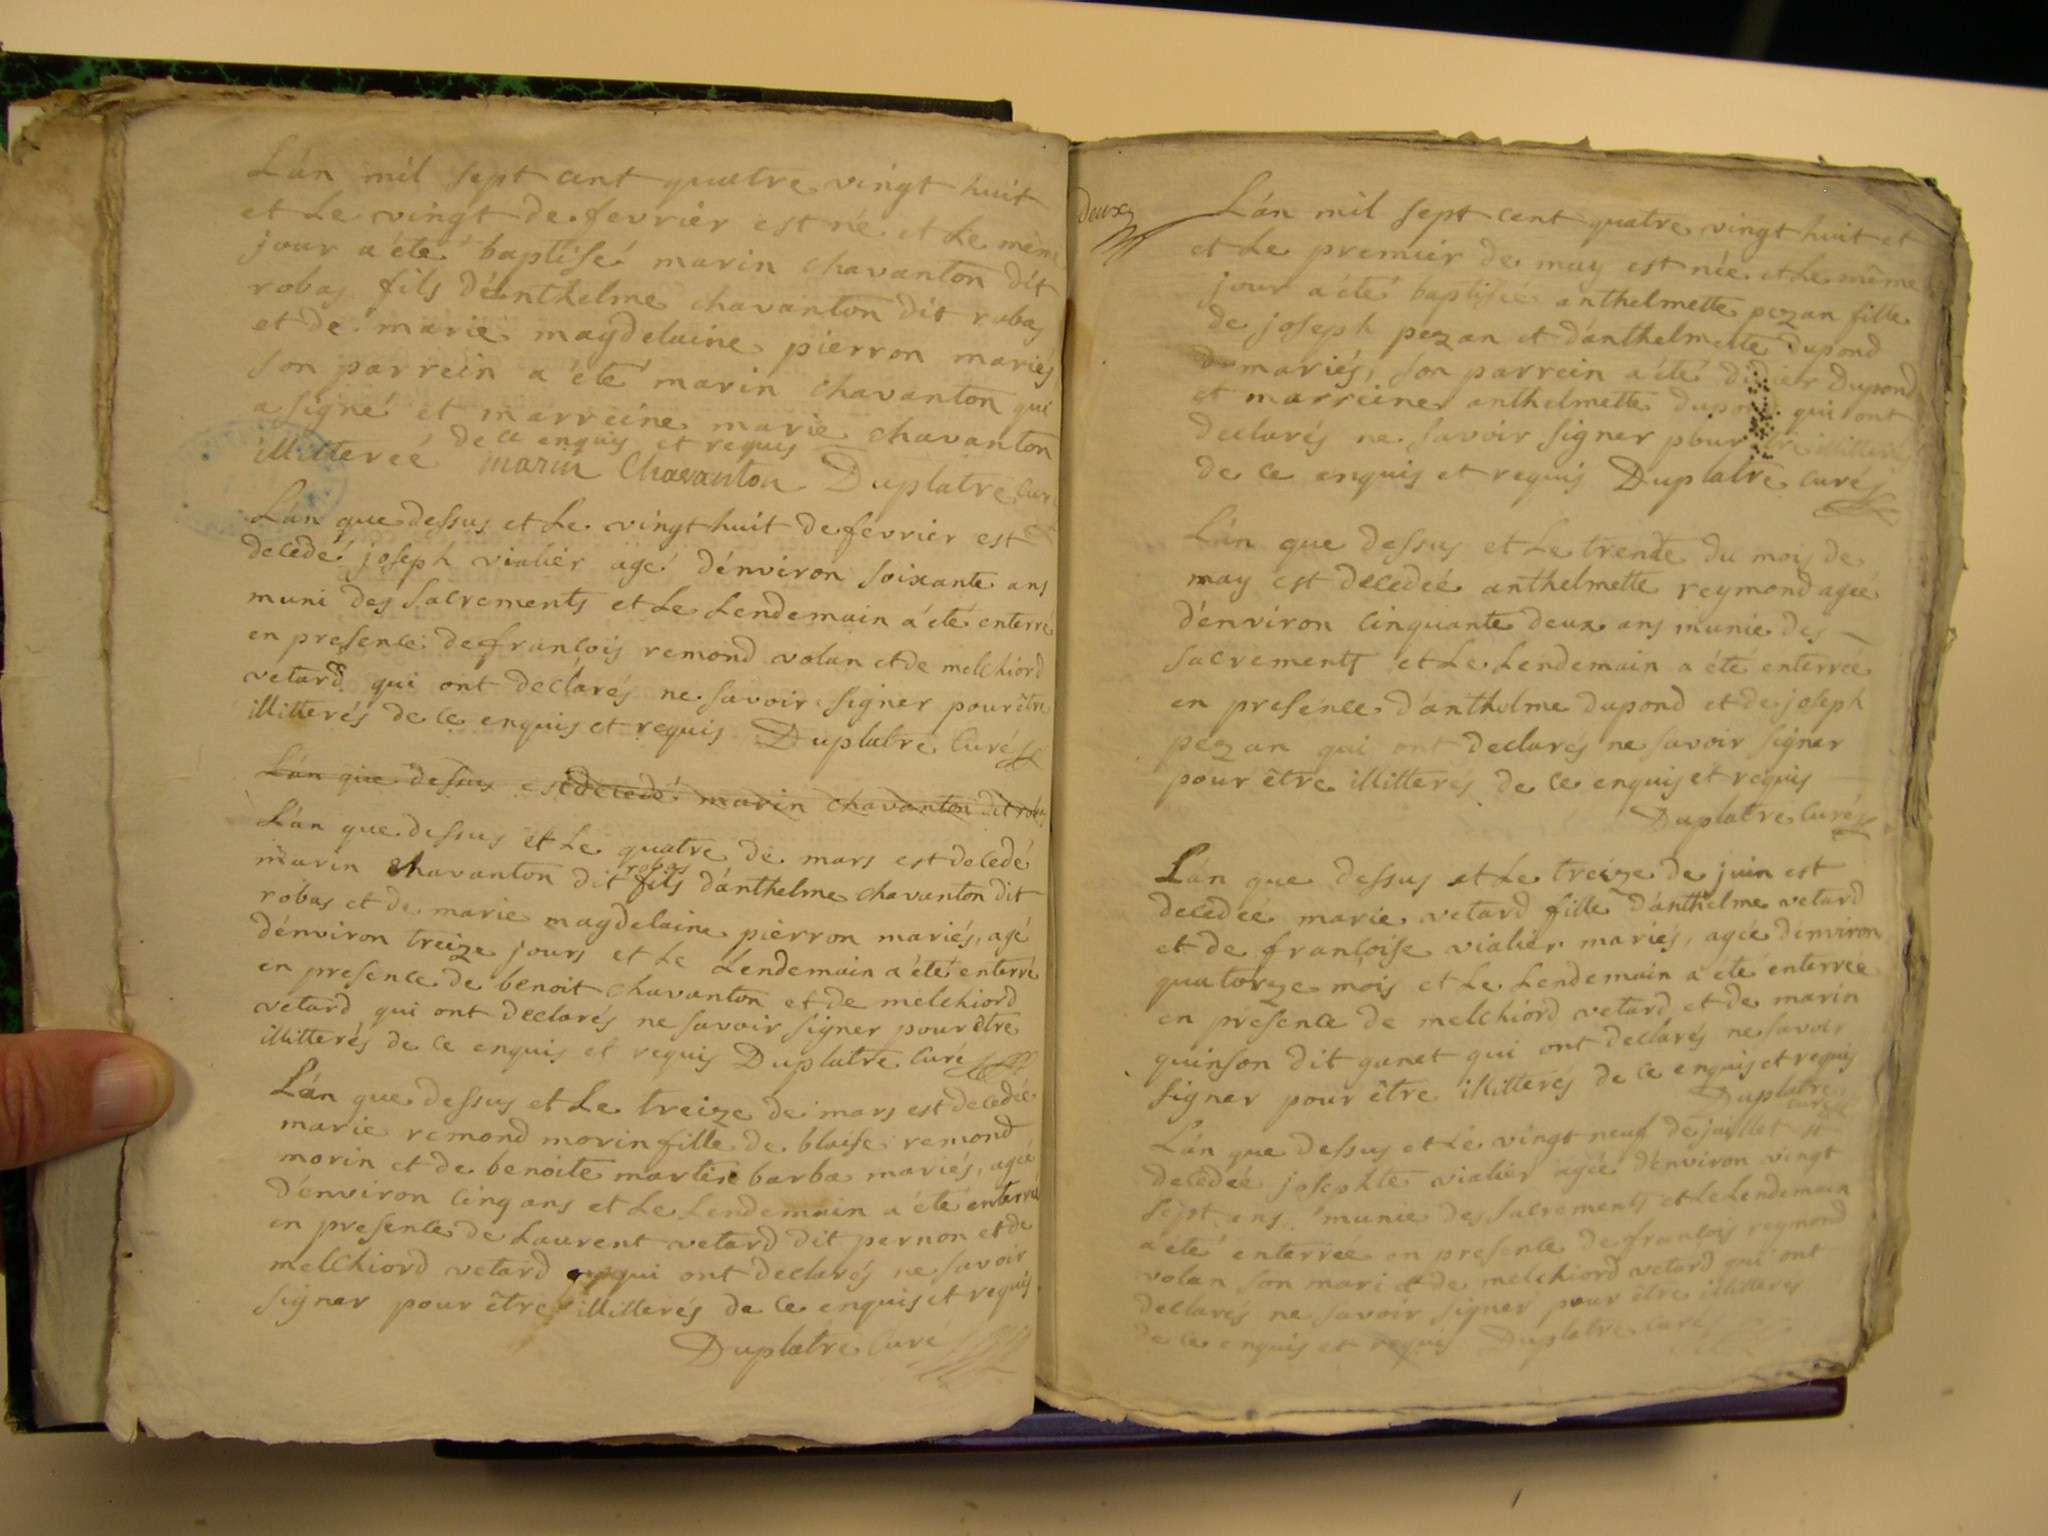 L'án mil sept cent quatre vingt huit
et Le vingt de fevrier est né et Le même
jour a été baptisé marin chavanton dit
robas fils d'ánthelme chavanton dit robas
et de marie magdelaine pierron mariés
son parrein a été marin chavanton qui
a signé et marreine marie chavanton
de ce enquis et requis
illitereé marin Chavanton Duplatre Curé
L'án que dessus et Le vingt huit de fevrier est
decedé joseph vialiér agé d'énviron soixante ans
muni des sacrements et Le Lendemain a été enterré
en presence de françois remond volan et de melchiord
vetard qui ont declarés ne savoir signer pour être
illitterés de ce enquis et requis Duplatre Curé
L'án que dessus est decedé marin chavanton dit robas
L'án que dessus et Le quatre de mars est decedé
robas
marin chavanton dit fils d'ánthelme chavanton dit
robas et de marie magdelaine pierron mariés, agé
d'énviron treize jours et Le Lendemain a été enterré
en presence de benoit chavanton et de melchiord
vetard qui ont declarés ne savoir signer pour être
illitterés de ce enquis et requis Duplatre Curé
L'án que dessus et Le treize de mars est decedée
marie remond morin fille de blaise remond
morin et de benoite martin barba mariés, agée
d'énviron cinq ans et Le Lendemain a été enterrée
en presence de Laurent vetard dit pernon et de
melchiord vetard qui ont declarés ne savoir
signer pour être illitterés de ce enquis et requis
Duplatre Curé
deux
L'án mil sept cent quatre vingt huit et
et Le premier de may est née et Le même
jour a été baptisée anthelmette pezan fille
de joseph pezan et d'ánthelmette dupond
mariés, son parrein a été didier Dupond
et marreine anthelmette dupond qui ont
declarés ne savoir signer pour être illitterés
de ce enquis et requis Duplatre Curé
L'án que dessus et Le trente du mois de
may est decedée anthelmette reymond agée
d'énviron cinquante deux ans munie des
sacrements et Le Lendemain a été enterrée
en presence d'ánthelme dupond et de joseph
pezan qui ont declarés ne savoir signer
pour être illitterés de ce enquis et requis
Duplatre Curé
L'án que dessus et Le treize de juin est
decedée marie vetard fille d'ánthelme vetard
et de françoise vialiér mariés, agée d'énviron
quatorze mois et Le Lendemain a été enterrée
en presence de melchiord vetard et de marin
quinson dit ganet qui ont declarés ne savoir
signer pour être illitterés de ce enquis et requis
Duplatre
curé
L'án que dessus et Le vingt neuf de juillet est
decedée josephte vialiér agée d'énviron vingt
sept ans munie des sacrements et Le Lendemain
a été enterrée en presence de françois reymond
volan son mari et de melchiord vetard qui ont
declarés ne savoir signer pour être illitterés
de ce enquis et requis Duplatre Curé